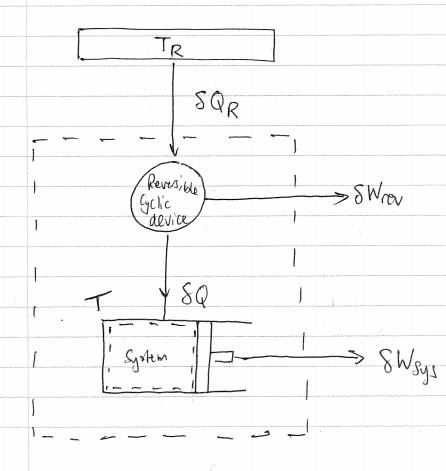 T_R
δQ_R
Reversible
Cyclic
device
δW_rev
δQ
T
System
δW_sys